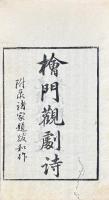 檜門觀劇詩
附录諸家題跋和作